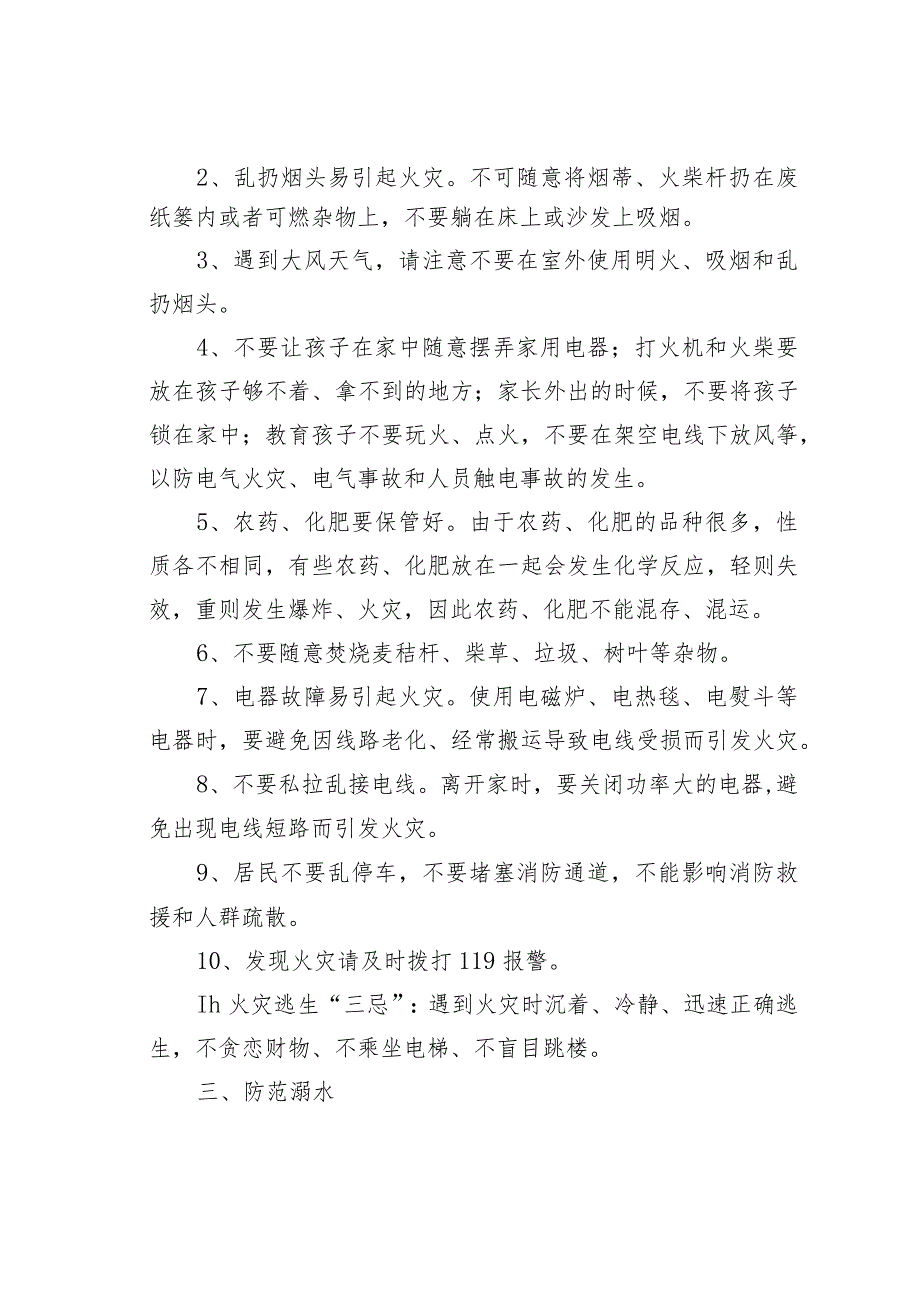 2、乱扔烟头易引起火灾。不可随意将烟蒂、火柴杆扔在废
纸篓内或者可燃杂物上，不要躺在床上或沙发上吸烟。
3、遇到大风天气，请注意不要在室外使用明火、吸烟和乱
扔烟头。
4、不要让孩子在家中随意摆弄家用电器；打火机和火柴要
放在孩子够不着、拿不到的地方；家长外出的时候，不要将孩子
锁在家中；教育孩子不要玩火、点火，不要在架空电线下放风筝，
以防电气火灾、电气事故和人员触电事故的发生。
5、农药、化肥要保管好。由于农药、化肥的品种很多，性
质各不相同，有些农药、化肥放在一起会发生化学反应，轻则失
效，重则发生爆炸、火灾，因此农药、化肥不能混存、混运。
6、不要随意焚烧麦秸杆、柴草、垃圾、树叶等杂物。
7、电器故障易引起火灾。使用电磁炉、电热毯、电熨斗等
电器时，要避免因线路老化、经常搬运导致电线受损而引发火灾。
8、不要私拉乱接电线。离开家时，要关闭功率大的电器,避
免出现电线短路而引发火灾。
9、居民不要乱停车，不要堵塞消防通道，不能影响消防救
援和人群疏散。
10、发现火灾请及时拨打 119 报警。
Ih 火灾逃生“三忌”：遇到火灾时沉着、冷静、迅速正确逃
生，不贪恋财物、不乘坐电梯、不盲目跳楼。
三、防范溺水